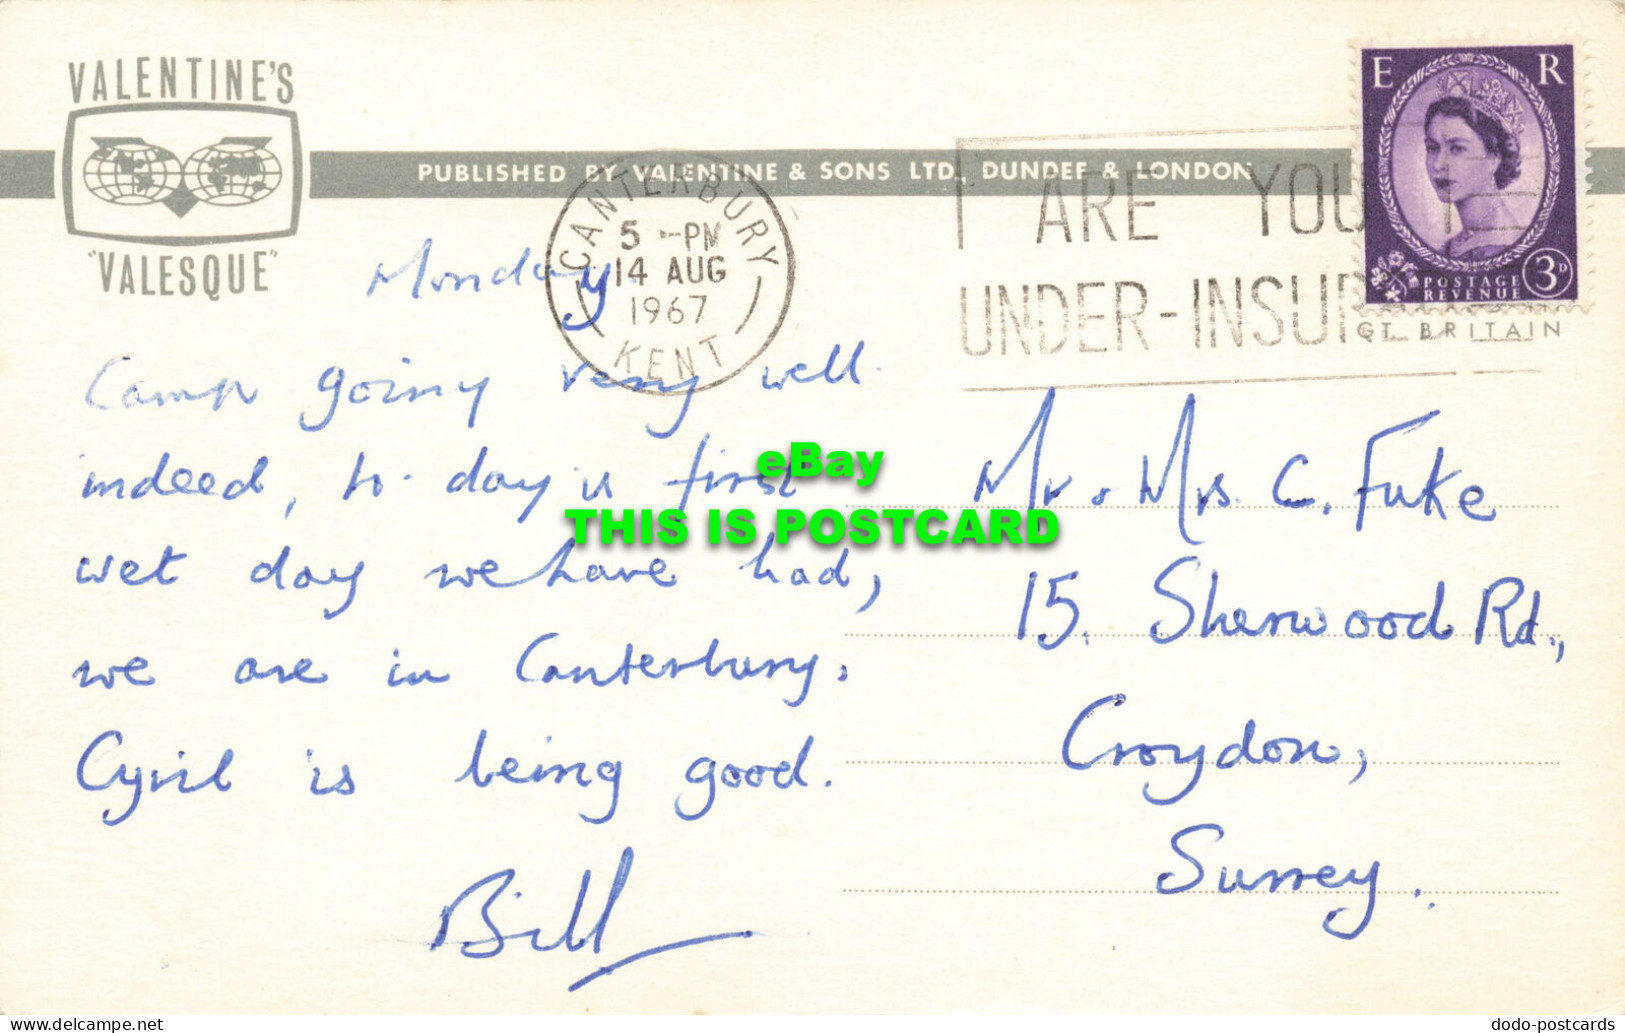 VALENTINE'S
"VALESQUE"
PUBLISHED BY VALENTINE & SONS LTD., DUNDEE & LONDON
CANTERBURY
5 - PM
14 AUG
1967
KENT
ARE YOU
UNDER-INSUR
E R
POSTAGE
REVENUE
3D
GT. BRITAIN
Monday
Camp going very well
indeed, to-day is first
wet day we have had,
we are in Canterbury.
Cyril is being good.
Bill
Mr. Mrs. C. Fuke
15, Sherwood Rd.,
Croydon,
Surrey.
eBay
THIS IS POSTCARD
dodo-postcards
www.delcampe.net